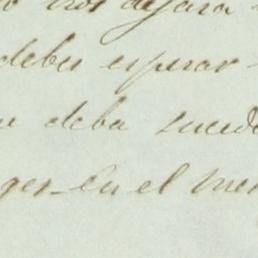 nos dejara
debes esperar
deba suced
ger en el me